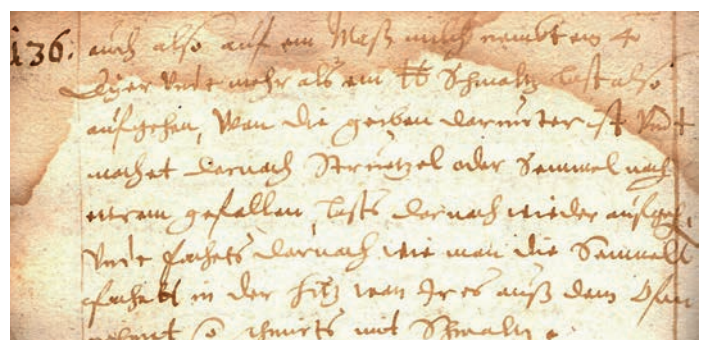 136.
auch also auf ein Mass milch nembt ein 40
Ayer vnd mehr als ein ℔ Schmaltz last also
aufgehen, Wan die gerben darunter ist Vnd
machet darnach Strutzel oder Semmel nach
eurem gefallen, lasts darnach wieder aufgeh
Vnd bachets darnach wie man die Semmell
bachet in der hitz wan Ir es auß dem Ofen
nehmt so schmirts mit Schmaltz.